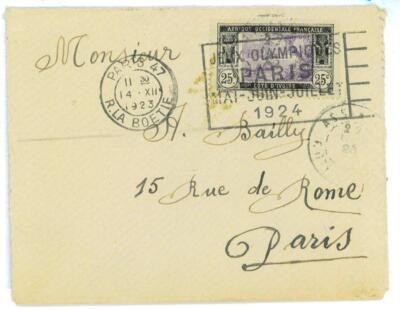 Monsieur
PARIS 47
14 · XII
1923
R. LA BOETIE
AFRIQUE OCCIDENTALE FRANÇAISE
25c 25c
CÔTE D'IVOIRE
JEUX OLYMPIQUES
PARIS
MAI-JUIN-JUILLET
1924
Bailly
15 Rue de Rome
Paris